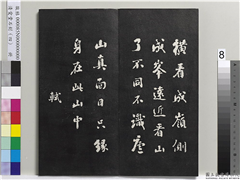 橫看成嶺側
成峯遠近看山
了不同不識廬
山真面目只緣
身在此山中
軾
8